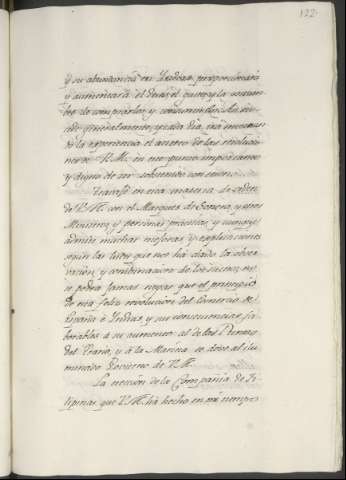 122
y su abundancia en Indias, proporcionará
y aumentará el deseo, el gusto, y la costum-
bre de comprarlos y consumirlos. Así su-
cede generalmente, y cada dia irá mostran-
do la experiencia el acierto de las resolucio-
nes de V.M. en este punto importante
y digno de ser sostenido con
Travajé en esta materia de orden
de V.M. con el Marques de Sonora, y otros
Ministros y personas prácticas, y aunque
admite muchas mejoras y explicaciones
segun las luces que nos ha dado la obser-
vacion y combinacion de los sucesos, no
se podrá jamas negar que el principio
de esta feliz revolucion del Comercio de
España é Indias, y sus consecuencias fa-
borables á su aumento, al de los Derechos
del Erario, y á la Marina se debe al ilu-
minado Govierno de V.M.
La ereccion de la Compañia de Fi-
lipinas que V.M. ha hecho en mi tiempo